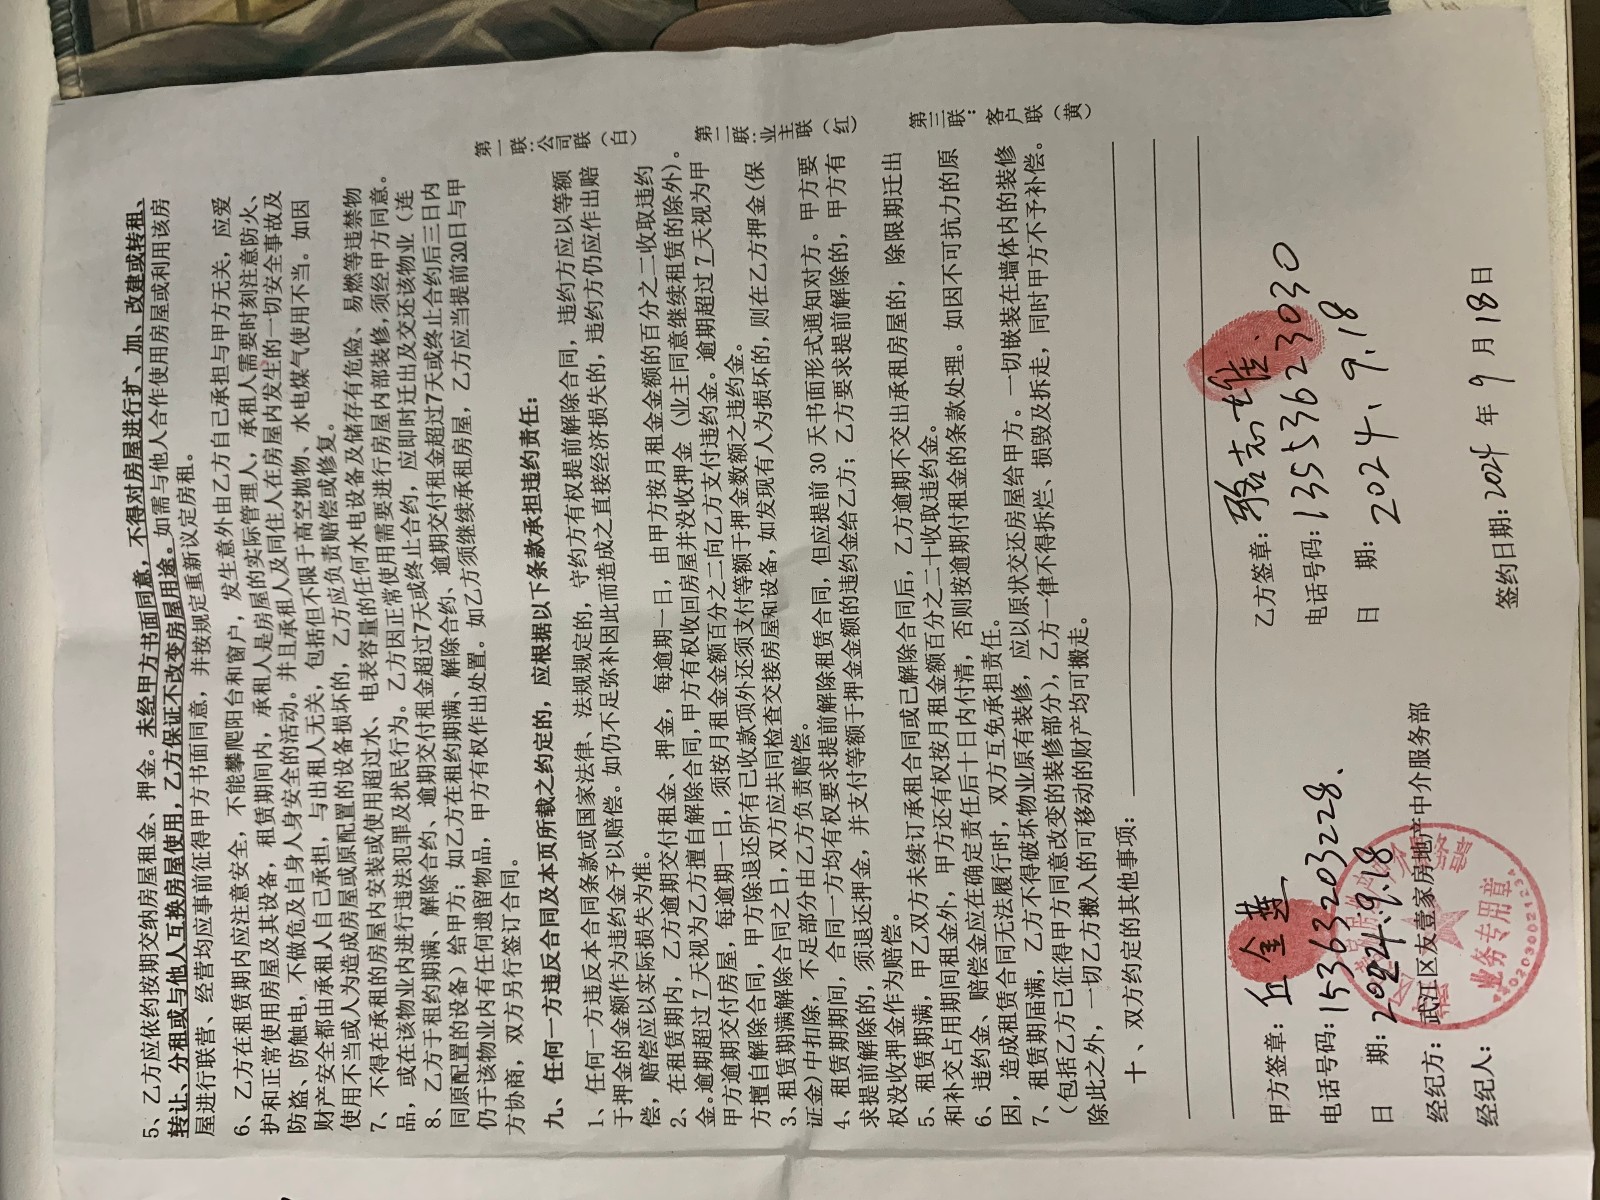 5、乙方应依约按期交纳房屋租金、押金。未经甲方书面同意，不得对房屋进行扩、加、改建或转租、
转让、分租或与他人互换房屋使用，乙方保证不改变房屋用途。如需与他人合作使用房屋或利用该房
屋进行联营、经营均应事前征得甲方书面同意，并按规定重新议定房租。
6、乙方在租赁期内应注意安全，不能攀爬阳台和窗户，发生意外由乙方自己承担与甲方无关，应爱
护和正常使用房屋及其设备，租赁期间内，承租人是房屋的实际管理人，承租人需要时刻注意防火、
防盗、防触电，不做危及自身人身安全的活动。并且承租人及同住人在房屋内发生的一切安全事故及
财产安全都由承租人自己承担，与出租人无关，包括但不限于高空抛物、水电煤气使用不当。如因
使用不当或人为造成房屋或原配置的设备损坏的，乙方应负责赔偿或修复。
7、不得在承租的房屋内安装或使用超过水、电表容量的任何水电设备及储存有危险、易燃等违禁物
品，或在该物业内进行违法犯罪及扰民行为。乙方因正常使用需要进行房屋内部装修，须经甲方同意。
8、乙方于租约期满、解除合约、逾期交付租金超过7天或终止合约，应即时迁出及交还该物业（连
同原配置的设备）给甲方；如乙方在租约期满、解除合约、逾期交付租金超过7天或终止合约后三日内
仍于该物业内有任何遗留物品，甲方有权作出处置。如乙方须继续承租房屋，乙方应当提前30日与甲
方协商，双方另行签订合同。
九、任何一方违反合同及本页所载之约定的，应根据以下条款承担违约责任：
1、任何一方违反本合同条款或国家法律、法规规定的，守约方有权提前解除合同，违约方应以等额
于押金的金额作为违约金予以赔偿。如仍不足弥补因此而造成之直接经济损失的，违约方仍应作出赔
偿，赔偿应以实际损失为准。
2、在租赁期内，乙方逾期交付租金、押金，每逾期一日，由甲方按月租金金额的百分之二收取违约
金。逾期超过7天视为乙方擅自解除合同，甲方有权收回房屋并没收押金（业主同意继续租赁的除外）。
甲方逾期交付房屋，每逾期一日，须按月租金金额百分之二向乙方支付违约金。逾期超过7天视为甲
方擅自解除合同，甲方除退还所有已收款项外还须支付等额于押金数额之违约金。
3、租赁期满解除合同之日，双方应共同检查交接房屋和设备，如发现有人为损坏的，则在乙方押金（保
证金）中扣除，不足部分由乙方负责赔偿。
4、租赁期期间，合同一方均有权要求提前解除租赁合同，但应提前30天书面形式通知对方。甲方要
求提前解除的，须退还押金，并支付等额于押金金额的违约金给乙方；乙方要求提前解除的，甲方有
权没收押金作为赔偿。
5、租赁期满，甲乙双方未续订承租合同或已解除合同后，乙方逾期不交出承租房屋的，除限期迁出
和补交占用期间租金外，甲方还有权按月租金额百分之二十收取违约金。
6、违约金、赔偿金应在确定责任后十日内付清，否则按逾期付租金的条款处理。如因不可抗力的原
因，造成租赁合同无法履行时，双方互免承担责任。
7、租赁期届满，乙方不得破坏物业原有装修，应以原状交还房屋给甲方。一切嵌装在墙体内的装修
（包括乙方已征得甲方同意改变的装修部分），乙方一律不得拆烂、损毁及拆走，同时甲方不予补偿。
除此之外，一切乙方搬入的可移动的财产均可搬走。
十、双方约定的其他事项：
第一联：公司联（白）
第二联：业主联（红）
第三联：客户联（黄）
甲方签章：丘金莲
电话号码：15363203228
日 期：2024.9.18
经纪方：武江区友壹家房地产中介服务部
经纪人：
乙方签章：骆志雄
电话号码：13553623030
日 期：2024.9.18
签约日期：2024年9月18日
业务专用章